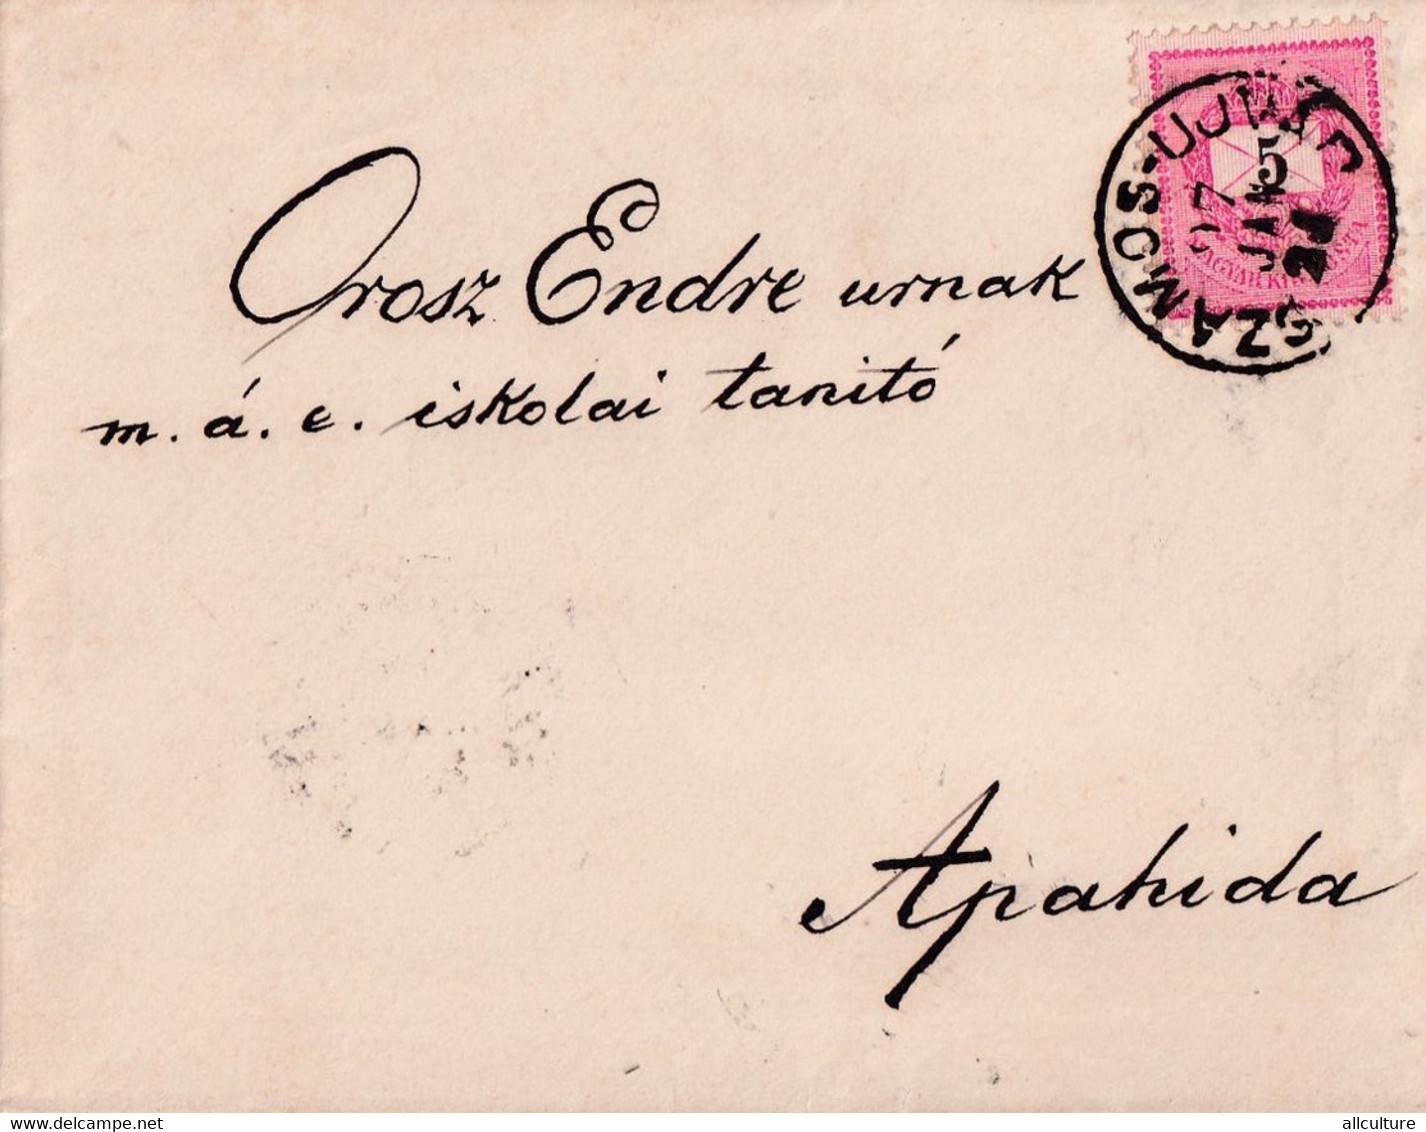 SZAMOS-UJVÁR
97
JAN
21
5
MAGYAR KIR. POSTA
Orosz Endre urnak
m. á. e. iskolai tanitó
Apahida
delcampe.net
allculture